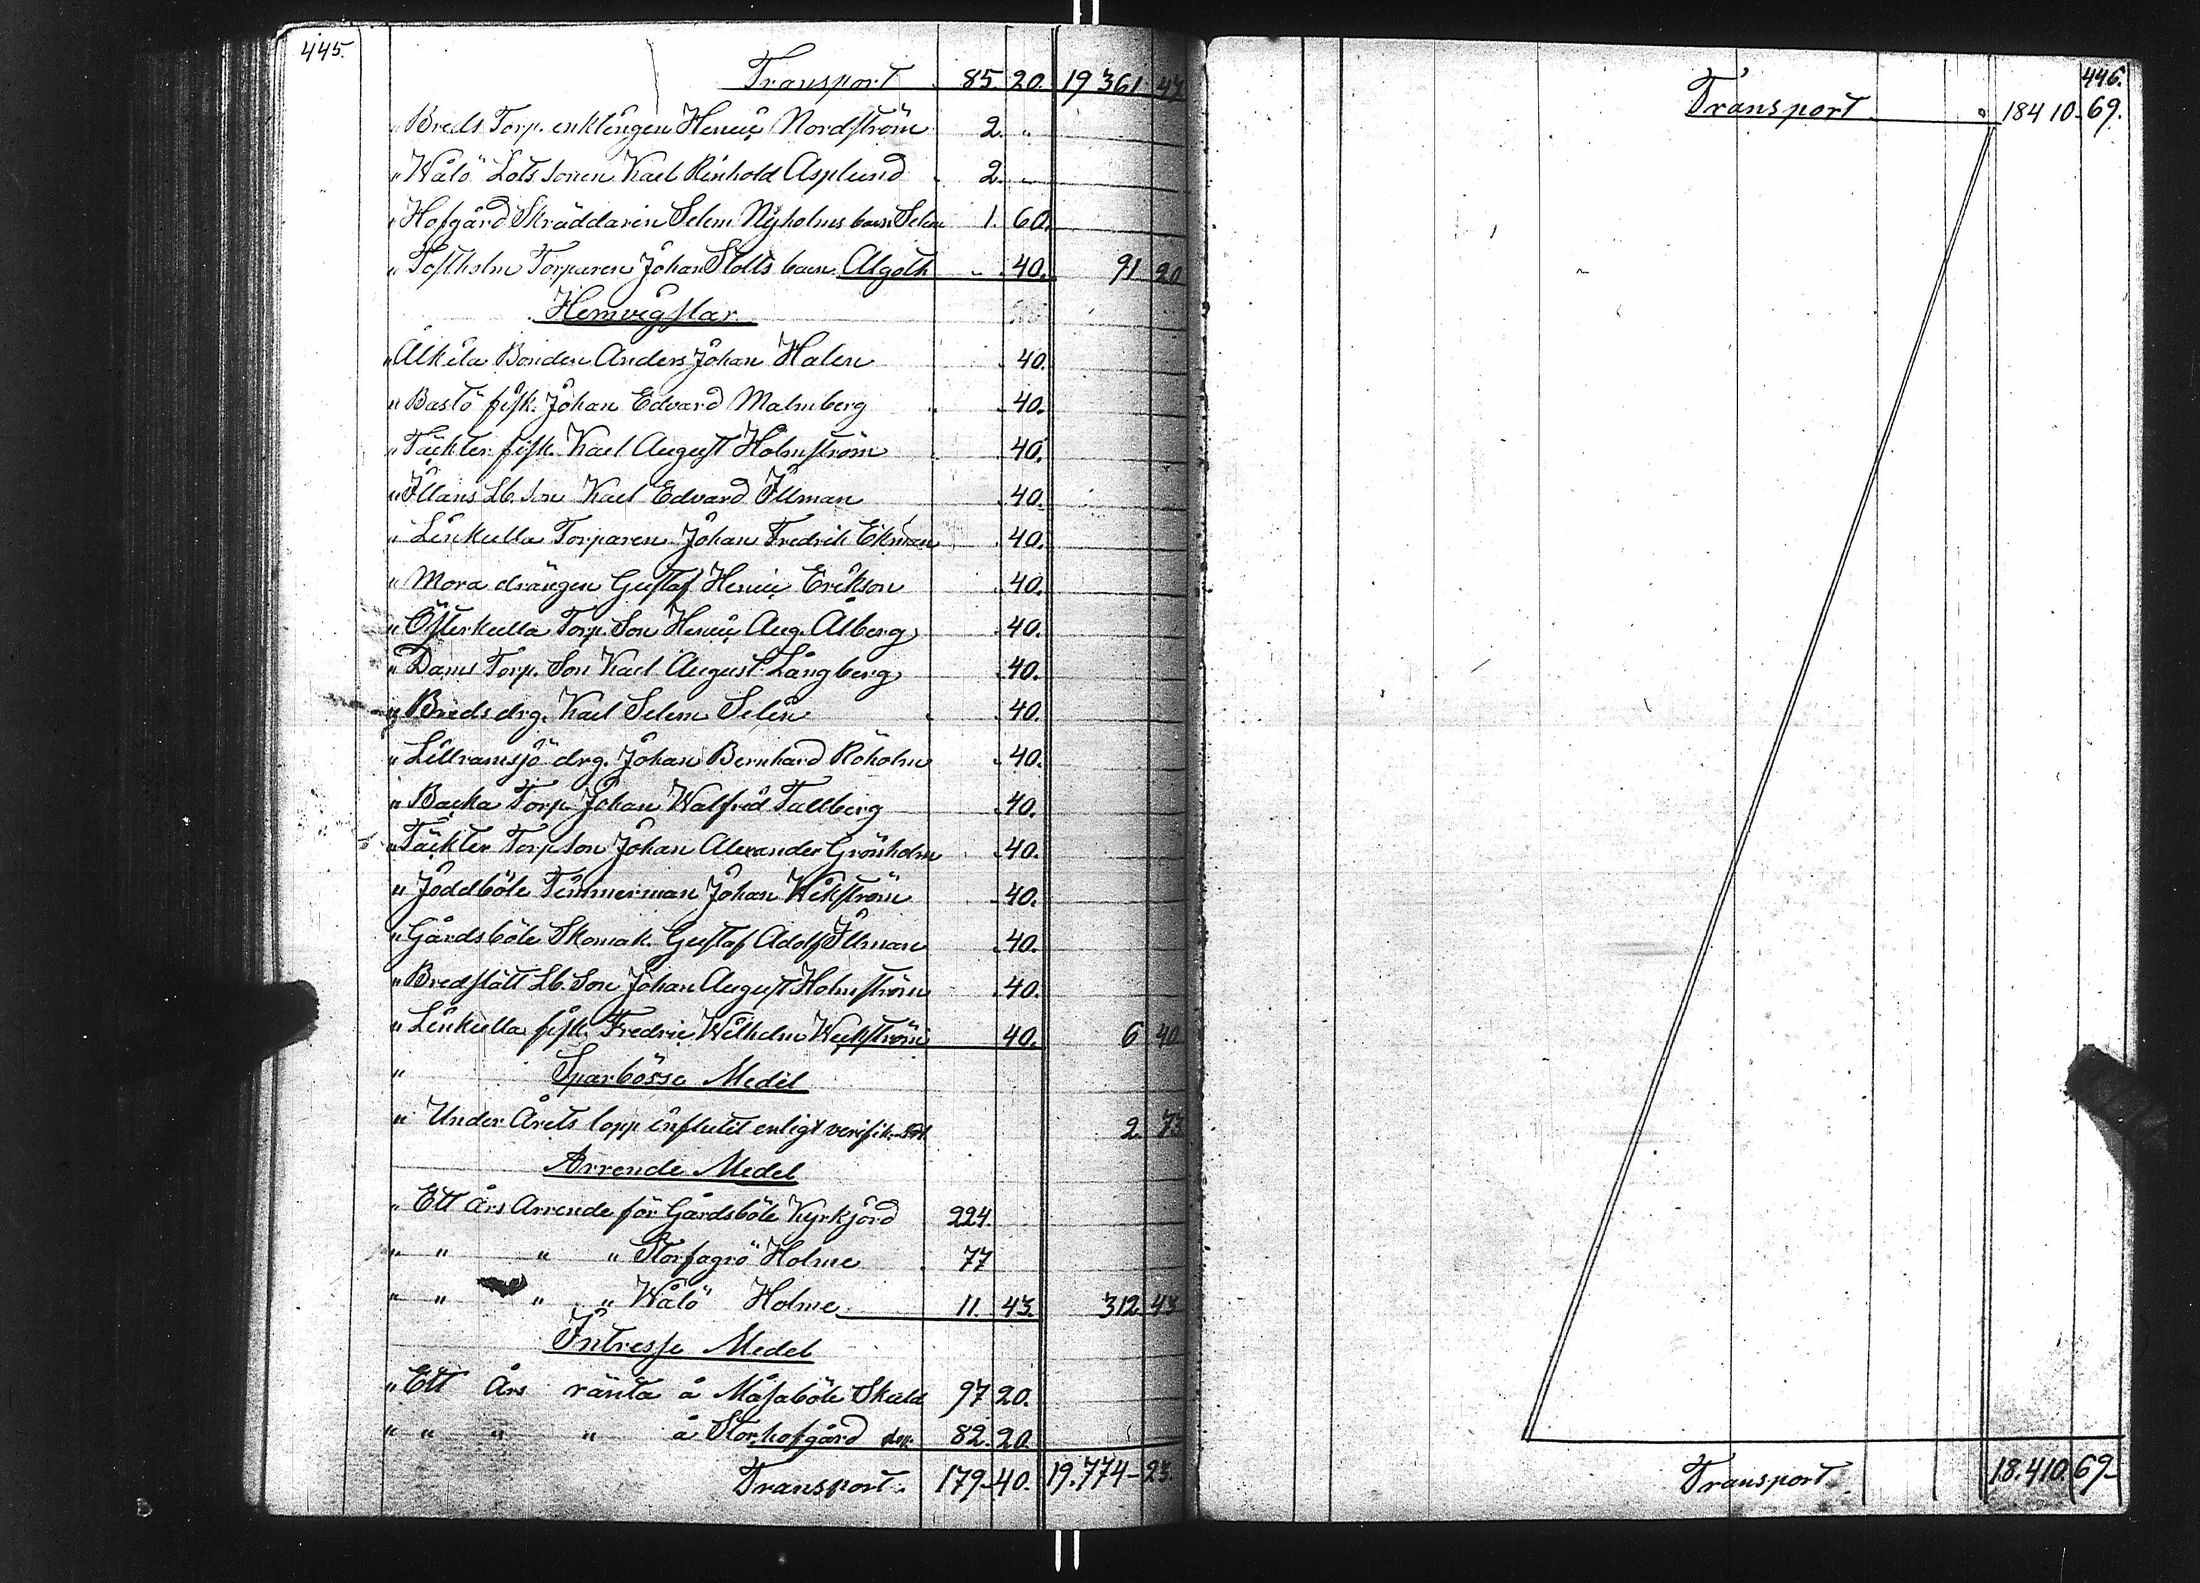 445.
Transport . 85. 20. 19 361 43
" Breds Torp. enklingen Henric Nordström 2. "
" Wålö Lots sonen Karl Rinhold Asplund . 2. "
" Hofgård Skräddaren Selim Nyholms barn Selim 1. 60.
" Toftholm Torparen Johan Stolts barn Algoth " . 40. 91 20
Hemvigslar
" Älkila Bonden Anders Johan Halen . 40.
" Bastö fisk. Johan Edvard Malmberg . . 40.
" Täckter fisk. Karl August Holmström . . 40.
" Illans Lb. Son Karl Edvard Illman . 40.
" Linkulla Torparen Johan Fredrik Ekman . 40.
" Mora drängen Gustaf Henric Erikson . 40.
" Österkulla Torp. Son Henric Aug. Alberg . 40.
" Dams Torp. Son Karl August Långberg . 40.
" Breds drg. Karl Selim Selin . . 40.
" Lillramsjö drg. Johan Bernhard Röholm . 40.
" Backa Torp. Johan Walfrid Tallberg . 40.
" Täckter Torp son Johan Alexander Grönholm . 40.
" Joddböle Timmerman Johan Wikström . 40.
" Gårdsböle Skomak. Gustaf Adolf Illman . 40.
" Bredslätt Lb. Son Johan August Holmström . 40.
" Linkulla fisk. Fredric Wilhelm Weckström 40. 6 40
" Sparbösse Medel
" Under Årets lopp influtit enligt verifik. 2. 73
Arrende Medel
" Ett års Arrende för Gårdsböle Kyrkjord 224.
" " " " Storfagrö Holme . 77
" " " " Wålö Holme 11. 43. 312 43
Intresse Medel
" Ett års ränta å Måsaböle Skuld 97 20.
" " " " å Storhofgård 82. 20
Transport. 179.40. 19.774-23.
446.
Transport 18410.69.
Transport. 18.410.69-